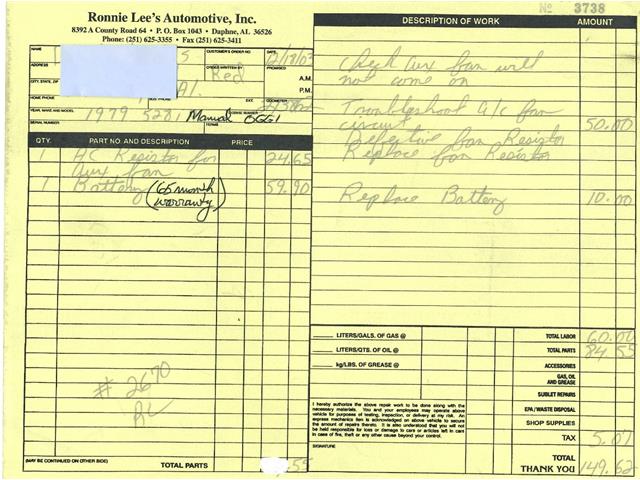 Ronnie Lee's Automotive, Inc.
8392 A County Road 64 • P. O. Box 1043 • Daphne, AL 36526
Phone: (251) 625-3355 • Fax (251) 625-3411
NAME
CUSTOMER'S ORDER NO.
DATE 12/18/03
ADDRESS
ORDER WRITTEN BY Red
PROMISED
A.M.
CITY, STATE, ZIP Al.
P.M.
HOME PHONE
BUS. PHONE
EXT.
ODOMETER
YEAR, MAKE AND MODEL 1979 528i Manual
LICENSE NUMBER OGG1
SERIAL NUMBER
TERMS
QTY. PART NO. AND DESCRIPTION PRICE
1 AC Resistor for 24.65
aux fan
1 Battery (65 month warranty) 59.90
# 2670
(MAY BE CONTINUED ON OTHER SIDE) TOTAL PARTS 55
No 3738
DESCRIPTION OF WORK AMOUNT
Check Aux fan will
not come on
Troubleshoot a/c fan
circuit 50.00
Defective fan Resistor
Replace fan Resistor
Replace Battery 10.00
LITERS/GALS. OF GAS @ TOTAL LABOR 60.00
LITERS/QTS. OF OIL @ TOTAL PARTS 84.55
kg/LBS. OF GREASE @ ACCESSORIES
GAS, OIL AND GREASE
SUBLET REPAIRS
I hereby authorize the above repair work to be done along with the
necessary materials. You and your employees may operate above
vehicle for purposes of testing, inspection, or delivery at my risk. An
express mechanics lien is acknowledged on above vehicle to secure
the amount of repairs thereto. It is also understood that you will not
be held responsible for loss or damage to cars or articles left in cars
in case of fire, theft or any other cause beyond your control.
EPA / WASTE DISPOSAL
SHOP SUPPLIES
TAX 5.07
SIGNATURE
TOTAL
THANK YOU 149.62